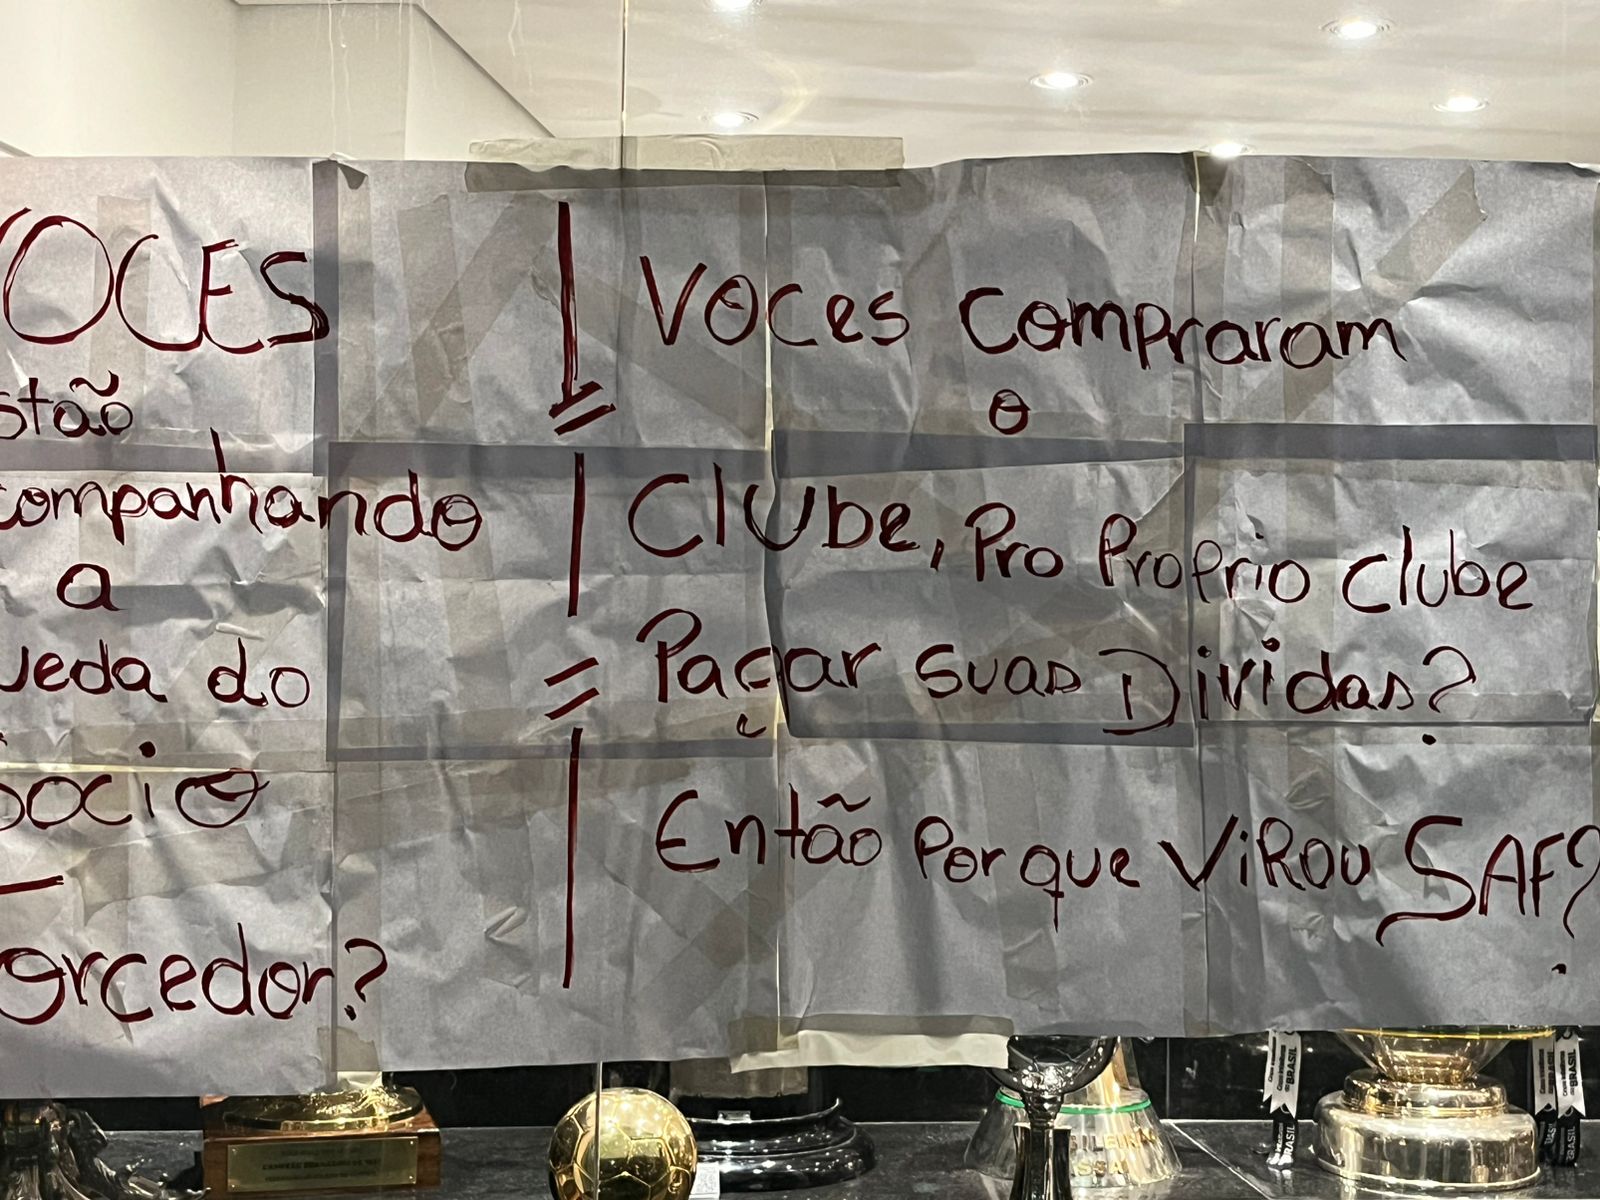 VOCES
stão
companhando
a
ueda do
Sócio
—
orcedor?
Voces compraram
o
Clube, Pro Proprio clube
Pagar suas Dividas?
Então Por que ViROU SAF?
BRASIL
BRASIL